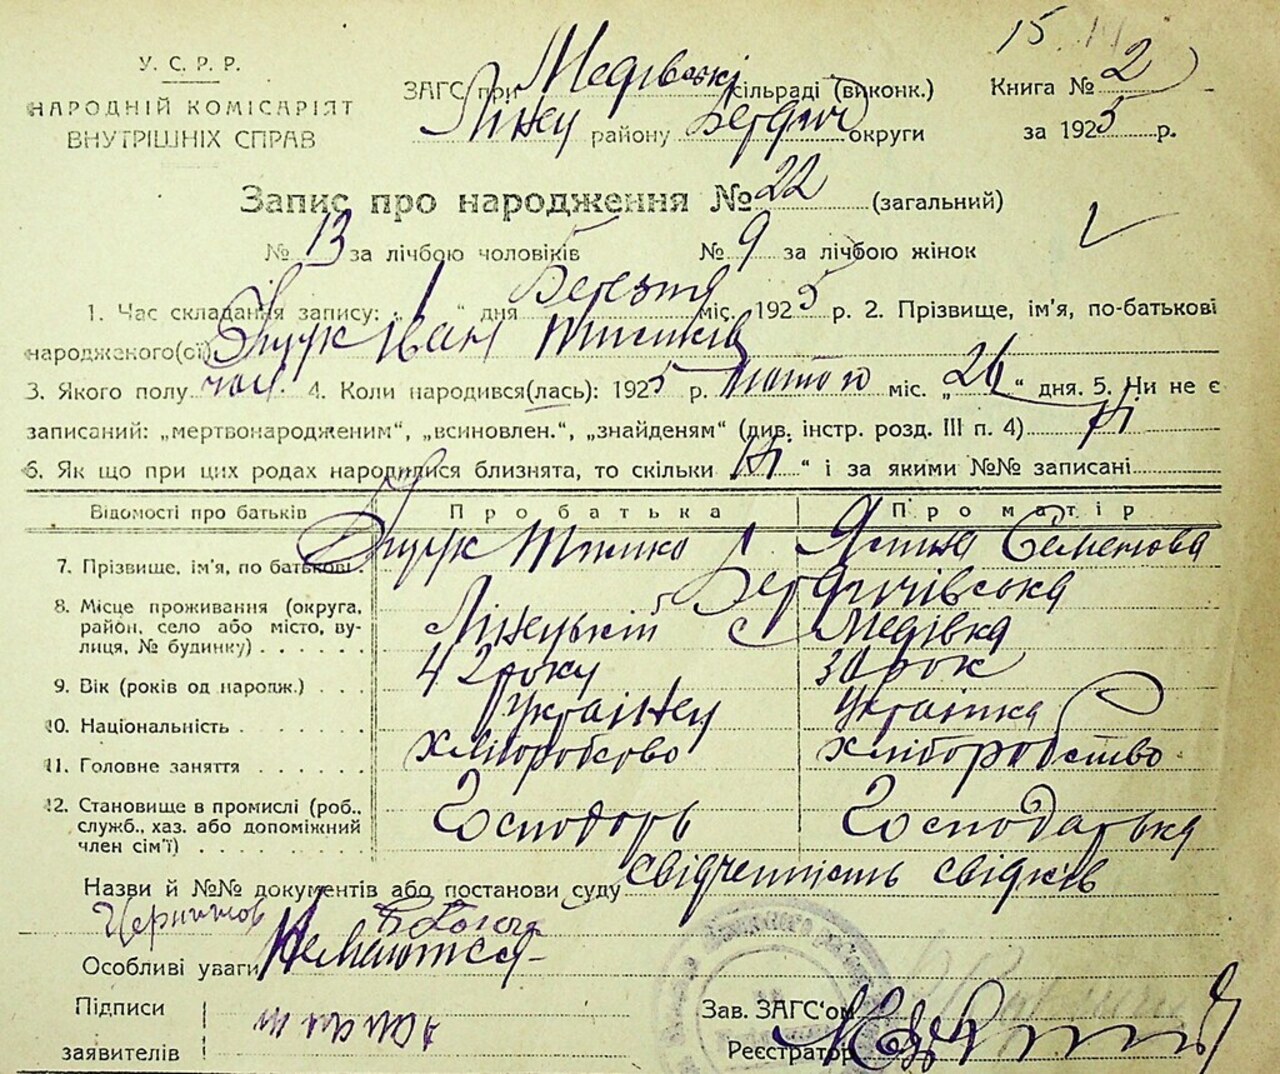 15.
У. С. Р. Р.
НАРОДНІЙ КОМІСАРІЯТ
ВНУТРІШНІХ СПРАВ
ЗАГС при Медівські сільраді (виконк.)
Лінец району Бердич округи
Книга № 2
за 1925 р.
Запис про народження № 22 (загальний)
№ 13 за лічбою чоловіків № 9 за лічбою жінок
1. Час складання запису: „ 1 “ дня Березня міс. 1925 р. 2. Прізвище, ім'я, по-батькові
народженого(сі) Іван Тимків
3. Якого полу чол. 4. Коли народився(лась): 1925 р. лютого міс. „26“ дня. 5. Чи не є
записаний: „мертвонародженим“, „всиновлен.“, „знайденям“ (див. інстр. розд. III п. 4) ні
6. Як що при цих родах народилися близнята, то скільки ні “ і за якими №№ записані
Відомості про батьків Про батька Про матір
7. Прізвище, ім'я, по батькові. Тимко Ялина Семенова
8. Місце проживання (округа, район, село або місто, вулиця, № будинку) Бердичівська
Лінецький с Медівка
9. Вік (років од народж.) 42 року 30 рок
10. Національність українец українка
11. Головне заняття хліборобство хліборобство
12. Становище в промислі (роб., служб., хаз. або допоміжний член сім'ї) Господарь Господарька
Назви й №№ документів або постанови суду свідченність свідків
Особливі уваги Немаютсся
Підписи
заявителів
Зав. ЗАГС‘ом
Реєстратор